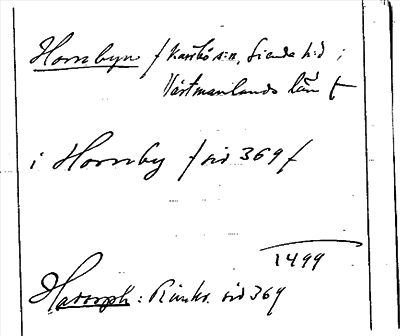 Hornbyn / Karrbo s:n, Siende h:d i
Västmanlands län /
i Hornby / sid 369 /
1499
Hadorph: Rimkr. sid 369